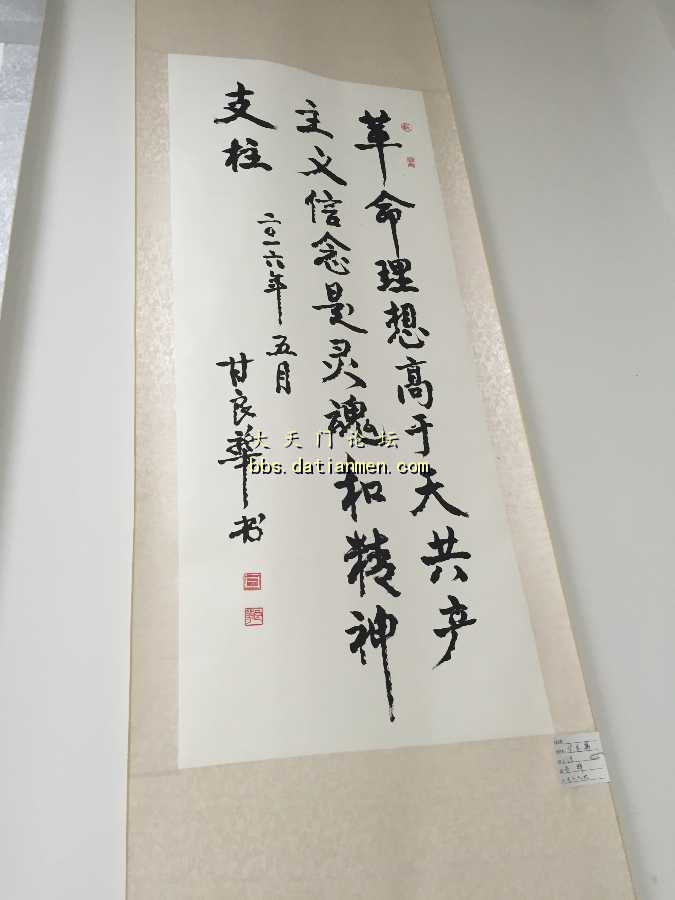 革命理想高于天共产
主义信念是灵魂和精神
支柱
二〇一六年五月
甘良华书
大天门论坛
bbs.datianmen.com